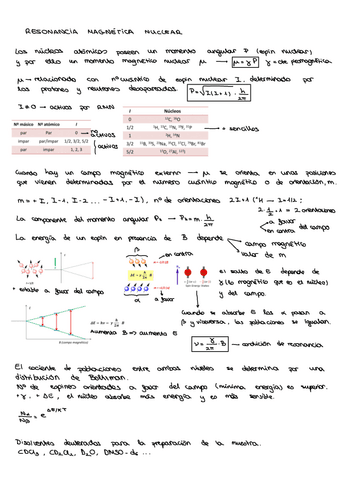 RESONANCIA MAGNÉTICA NUCLEAR
Los núcleos atómicos poseen un momento angular P (espín nuclear)
y por ello un momento magnético nuclear μ → μ = γ P γ = cte
μ → relacionado con nº cuántico de espín nuclear I. determinado por
los protones y neutrones desapareados. P = √I(I+1) · h/2π
I ≠ 0 → activos por RMN
Nº másico Nº atómico I
par Par 0 → no activos
impar par/impar 1/2, 3/2, 5/2
par impar 1, 2, 3
activos
I Núcleos
0 ¹²C, ¹⁶O
1/2 ¹H, ¹³C, ¹⁵N, ¹⁹F, ³¹P → + sencillos
1 ²H, ¹⁴N
3/2
5/2
Cuando hay un campo magnético externo → μ se orienta en unas posiciones
que vienen determinadas por el número cuántico magnético o de orientación, m.
m = +I, I-1, I-2 ... -I+1, -I), nº de orientaciones 2I+1 (¹H → I=1/2:
2·1/2+1 = 2 orientaciones
a favor
en contra del campo
La componente del momento angular Pz → Pz = m· h/2π
La energía de un espín en presencia de B depende campo magnético
valor de m
β
en contra
+ estable a favor del campo
α a favor
ΔE = hν = γ h/2π B
Aumenta B ⇒ aumenta E
B (campo magnético)
el salto de E depende de
γ (lo magnético que es el núcleo)
y del campo.
Cuando se absorbe E los α pasan a
β y viceversa, las poblaciones se igualan.
ν = γ/2π · B → condición de resonancia
El cociente de poblaciones entre ambos niveles se determina por una
distribución de Boltzman.
Nº de espines orientados a favor del campo (mínima energía) es superior.
+γ, +ΔE, el núcleo absorbe más energía y es más sensible.
Nα/Nβ = e^ΔE/KT
Disolventes deuterados para la preparación de la muestra.
CDCl₃, CD₂Cl₂, D₂O, DMSO-d₆ ...